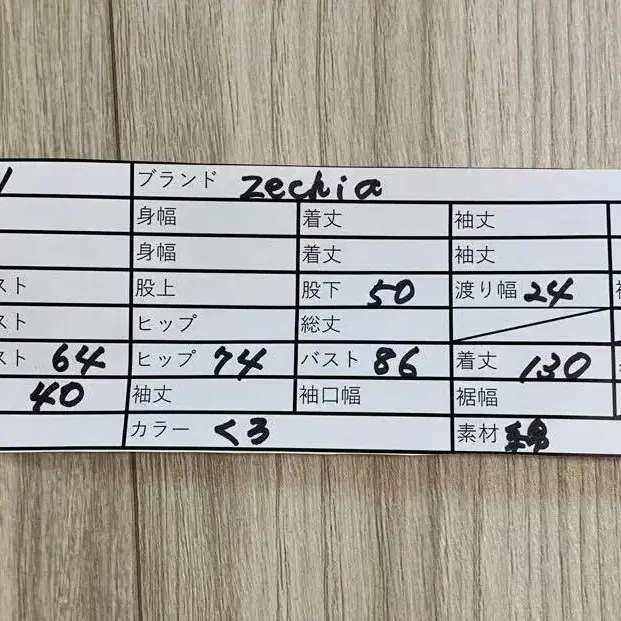 ブランド zechia
身幅 着丈 袖丈
身幅 着丈 袖丈
スト 股上 股下 50 渡り幅 24
スト ヒップ 総丈
スト 64 ヒップ 74 バスト 86 着丈 130
40 袖丈 袖口幅 裾幅
カラー くろ 素材